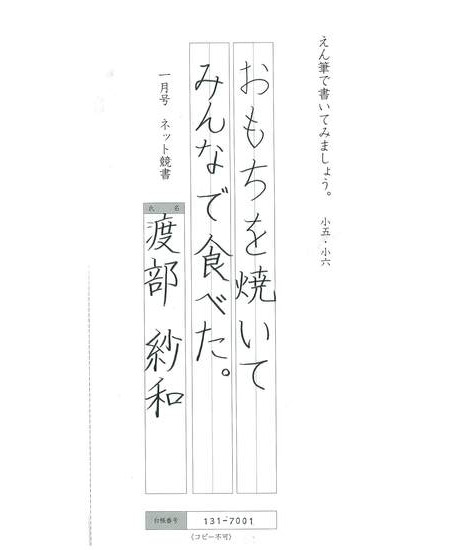 えん筆で書いてみましょう。 小五・小六
おもちを焼いて
みんなで食べた。
一月号 ネット競書
氏名
渡部 紗和
台帳番号 131-7001
(コピー不可)